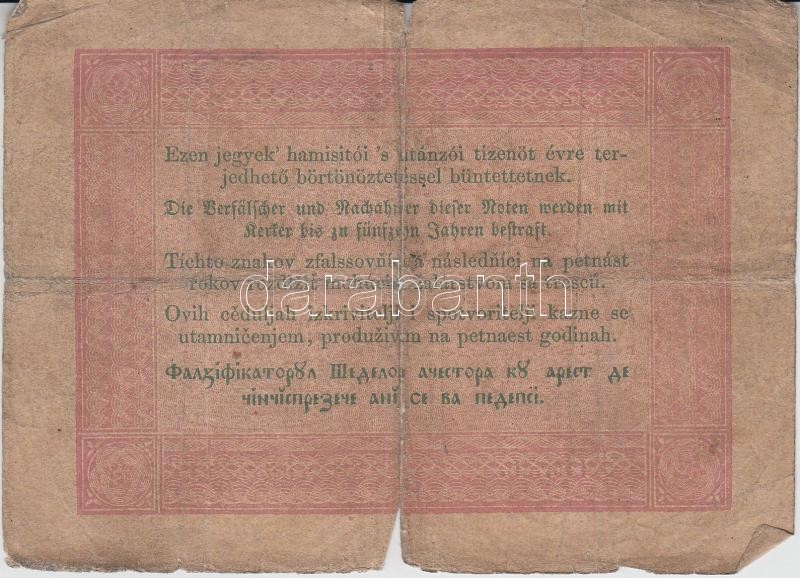 Ezen jegyek’ hamisitói ’s utánzói tizenöt évre ter-
jedhető börtönöztetéssel büntettetnek.
Die Verfälscher und Nachahmer dieser Noten werden mit
Kerker bis zu fünfzehn Jahren bestraft.
Tichto znakov zfalssovňíci a následňíci na petnást
rokov
darabanth
Ovih cěduljah izkriviteljí i spotvoritelji kazne se
utamničenjem, produživim na petnaest godinah.
Фалзіфікаторꙋл Шеделор ачестора кꙋ арест де
чінчіспрезече ані се ва педепсі.